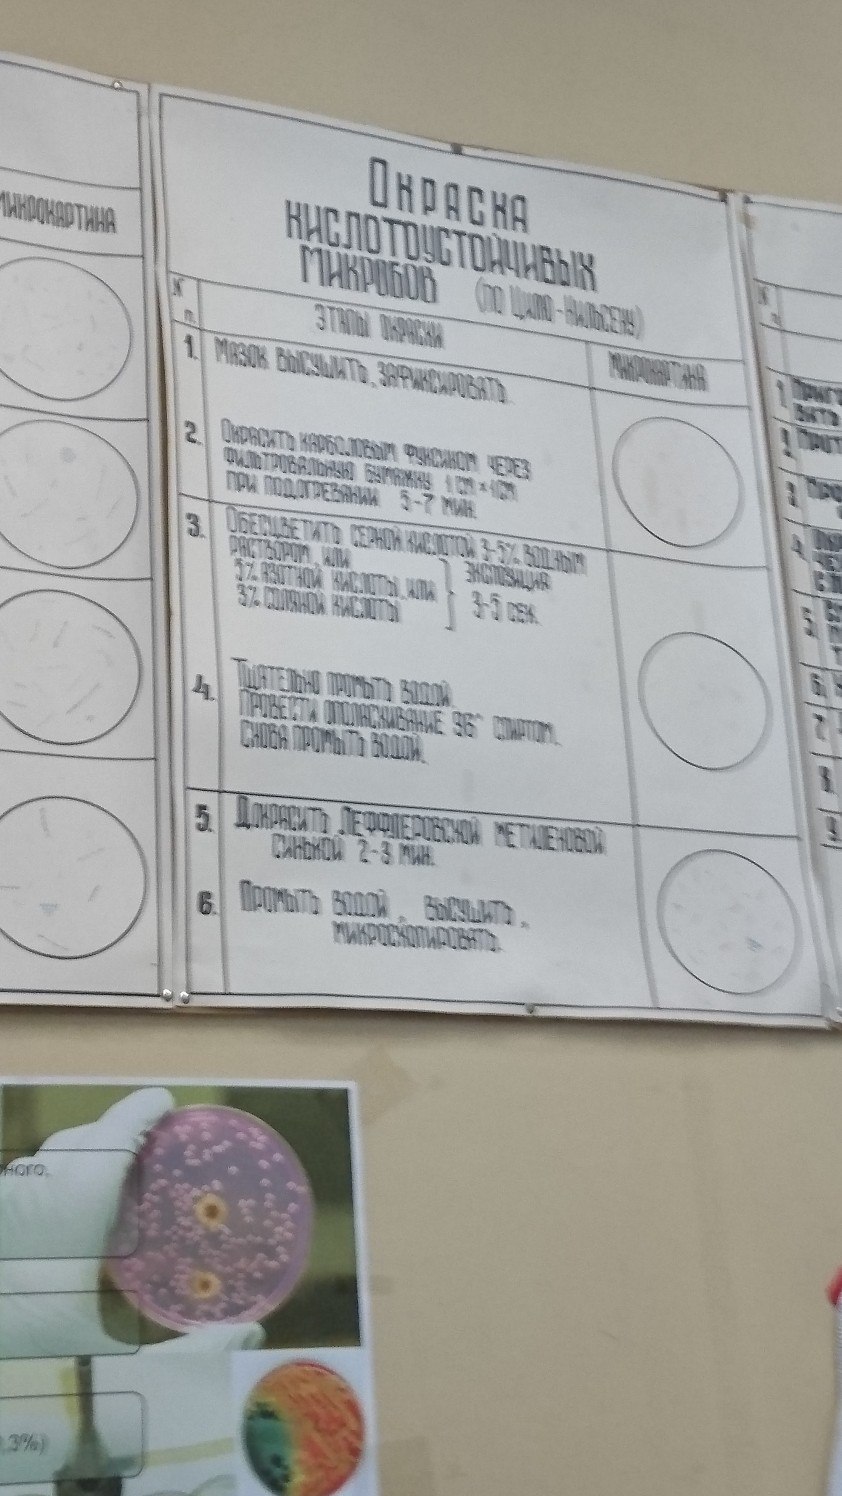 МИКРОКАРТИНА
ОКРАСКА
КИСЛОТОУСТОЙЧИВЫХ
МИКРОБОВ (ПО ЦИЛЮ-НИЛЬСЕНУ)
N
п.
ЭТАПЫ ОКРАСКИ
МИКРОКАРТИНА
1. МАЗОК ВЫСУШИТЬ, ЗАФИКСИРОВАТЬ.
2. ОКРАСИТЬ КАРБОЛОВЫМ ФУКСИНОМ ЧЕРЕЗ
ФИЛЬТРОВАЛЬНУЮ БУМАЖКУ 1СМ×1СМ
ПРИ ПОДОГРЕВАНИИ 5-7 МИН.
3. ОБЕСЦВЕТИТЬ СЕРНОЙ КИСЛОТОЙ 3-5% ВОДНЫМ
РАСТВОРОМ, ИЛИ
5% АЗОТНОЙ КИСЛОТЫ, ИЛИ } ЭКСПОЗИЦИЯ
3% СОЛЯНОЙ КИСЛОТЫ 3-5 СЕК.
4. ТЩАТЕЛЬНО ПРОМЫТЬ ВОДОЙ.
ПРОВЕСТИ ОПОЛАСКИВАНИЕ 96° СПИРТОМ.
СНОВА ПРОМЫТЬ ВОДОЙ.
5. ДОКРАСИТЬ ЛЕФФЛЕРОВСКОЙ МЕТИЛЕНОВОЙ
СИНЬКОЙ 2-3 МИН.
6. ПРОМЫТЬ ВОДОЙ, ВЫСУШИТЬ,
МИКРОСКОПИРОВАТЬ.
1.
2.
3.
4.
5.
6.
7.
8.
9.
ного.
.3%)